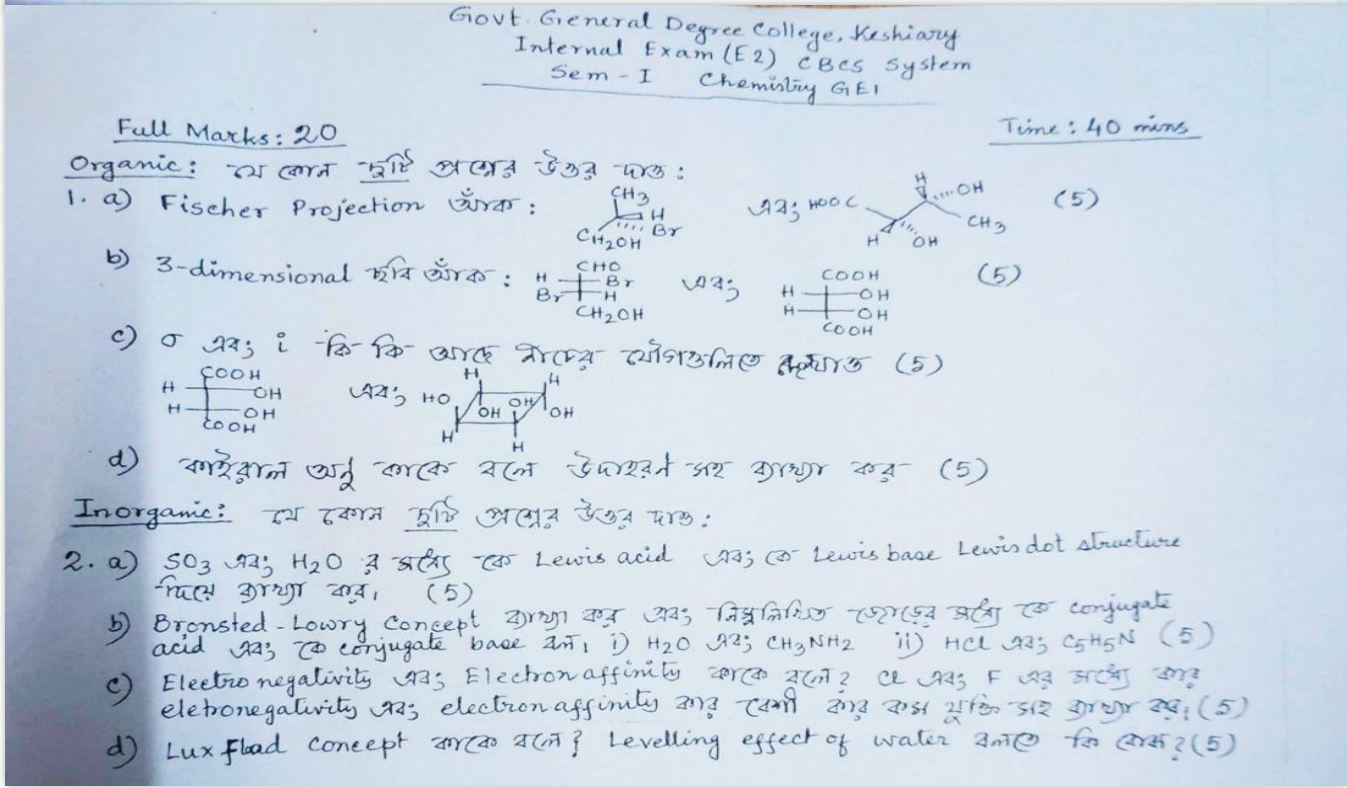 Govt. General Degree College, Keshiary
Internal Exam (E2) CBCS System
Sem - I Chemistry GE1
Full Marks: 20 Time: 40 mins
Organic: যে কোন দুটি প্রশ্নের উত্তর দাও :
1. a) Fischer Projection আঁক : CH3 H Br CH2OH এবং HOOC H OH CH3 H OH (5)
b) 3-dimensional ছবি আঁক : CHO H Br Br H CH2OH এবং COOH H OH H OH COOH (5)
c) σ এবং i কি কি আছে নীচের যৌগগুলিতে দেখাও (5)
COOH H OH H OH COOH এবং H H HO OH OH OH H H
d) কাইরাল অনু কাকে বলে উদাহরন সহ ব্যাখ্যা কর (5)
Inorganic: যে কোন দুটি প্রশ্নের উত্তর দাও :
2. a) SO3 এবং H2O র মধ্যে কে Lewis acid এবং কে Lewis base Lewis dot structure
দিয়ে ব্যাখ্যা কর। (5)
b) Bronsted-Lowry Concept ব্যাখ্যা কর এবং নিম্নলিখিত জোড়ের মধ্যে কে conjugate
acid এবং কে conjugate base বল। i) H2O এবং CH3NH2 ii) HCl এবং C5H5N (5)
c) Electronegativity এবং Electron affinity কাকে বলে? Cl এবং F এর মধ্যে কার
eletronegativity এবং electron affinity কার বেশী কার কম যুক্তি সহ ব্যাখ্যা কর। (5)
d) Lux Flad concept কাকে বলে? Levelling effect of water বলতে কি বোঝ? (5)